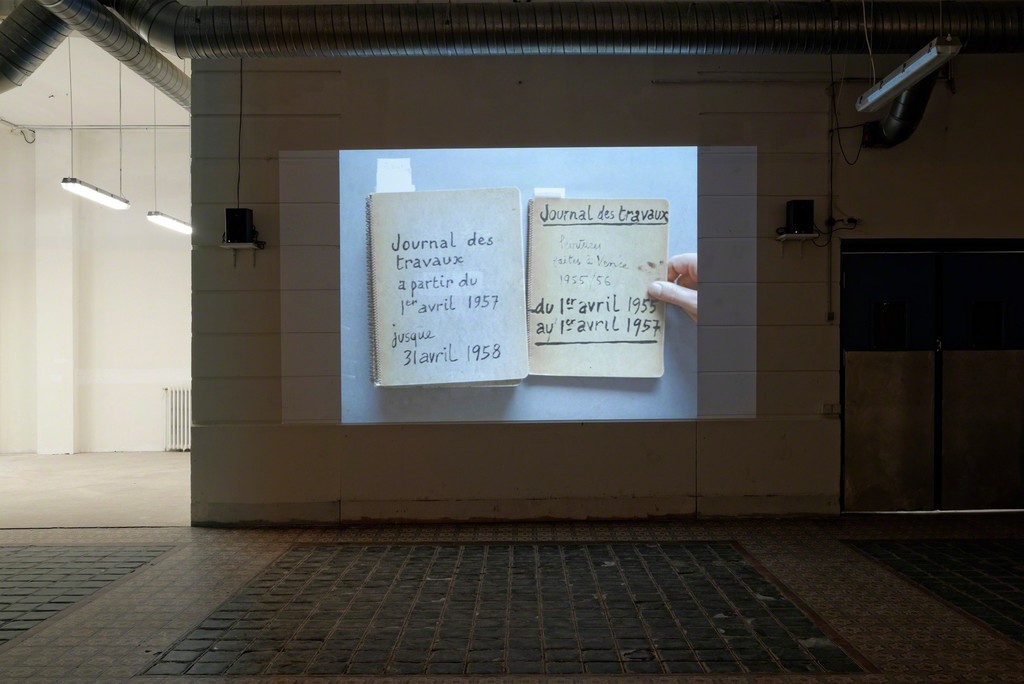 Journal des
travaux
a partir du
1er avril 1957
jusque
31 avril 1958
Journal des travaux
faites à Venise
1955/56
du 1er avril 1955
au 1er avril 1957